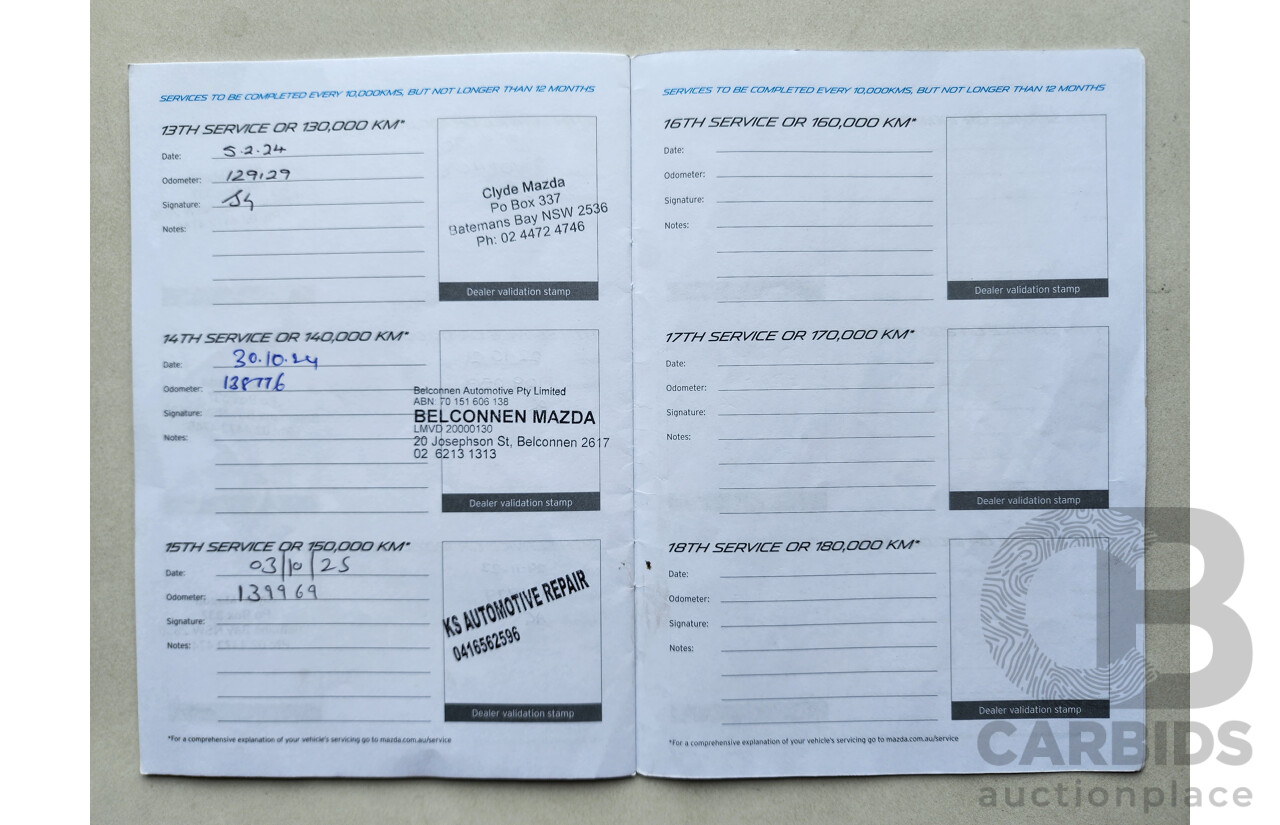 SERVICES TO BE COMPLETED EVERY 10,000KMS, BUT NOT LONGER THAN 12 MONTHS
13TH SERVICE OR 130,000 KM*
Date: 5.2.24
Odometer: 129129
Signature:
Notes:
Clyde Mazda
Po Box 337
Batemans Bay NSW 2536
Ph: 02 4472 4746
Dealer validation stamp
14TH SERVICE OR 140,000 KM*
Date: 30.10.24
Odometer: 138776
Signature:
Notes:
Belconnen Automotive Pty Limited
ABN: 70 151 606 138
BELCONNEN MAZDA
LMVD 20000130
20 Josephson St, Belconnen 2617
02 6213 1313
Dealer validation stamp
15TH SERVICE OR 150,000 KM*
Date: 03/10/25
Odometer: 139969
Signature:
Notes:
KS AUTOMOTIVE REPAIR
0416562596
Dealer validation stamp
*For a comprehensive explanation of your vehicle's servicing go to mazda.com.au/service
SERVICES TO BE COMPLETED EVERY 10,000KMS, BUT NOT LONGER THAN 12 MONTHS
16TH SERVICE OR 160,000 KM*
Date:
Odometer:
Signature:
Notes:
Dealer validation stamp
17TH SERVICE OR 170,000 KM*
Date:
Odometer:
Signature:
Notes:
Dealer validation stamp
18TH SERVICE OR 180,000 KM*
Date:
Odometer:
Signature:
Notes:
Dealer validation stamp
*For a comprehensive explanation of your vehicle's servicing go to mazda.com.au/service
CB
CARBIDS
auctionplace